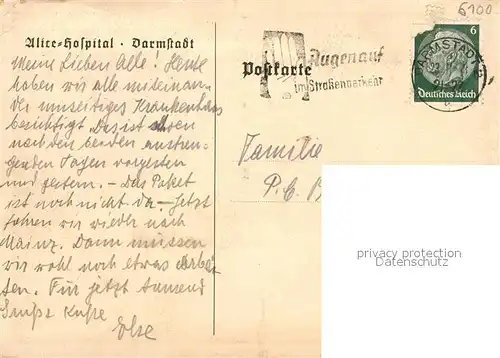 Alice-Hospital · Darmstadt
Meine Lieben Alle! Heute
haben wir alle miteinan-
der unseitiges Krankenhaus
besichtigt. Das ist
nach den beiden anstren-
genden Tagen vorgestern
und gestern. - Das Paket
ist noch nicht da. - Jetzt
fahren wir wieder nach
Mainz. Dann müssen
wir wohl noch etwas arbei-
ten. Für jetzt tausend
Grüße Küsse
Else
Postkarte
Augen auf
im Straßenverkehr
DARMSTADT
6
Deutsches Reich
6100
Familie
P. C.
privacy protection
Datenschutz